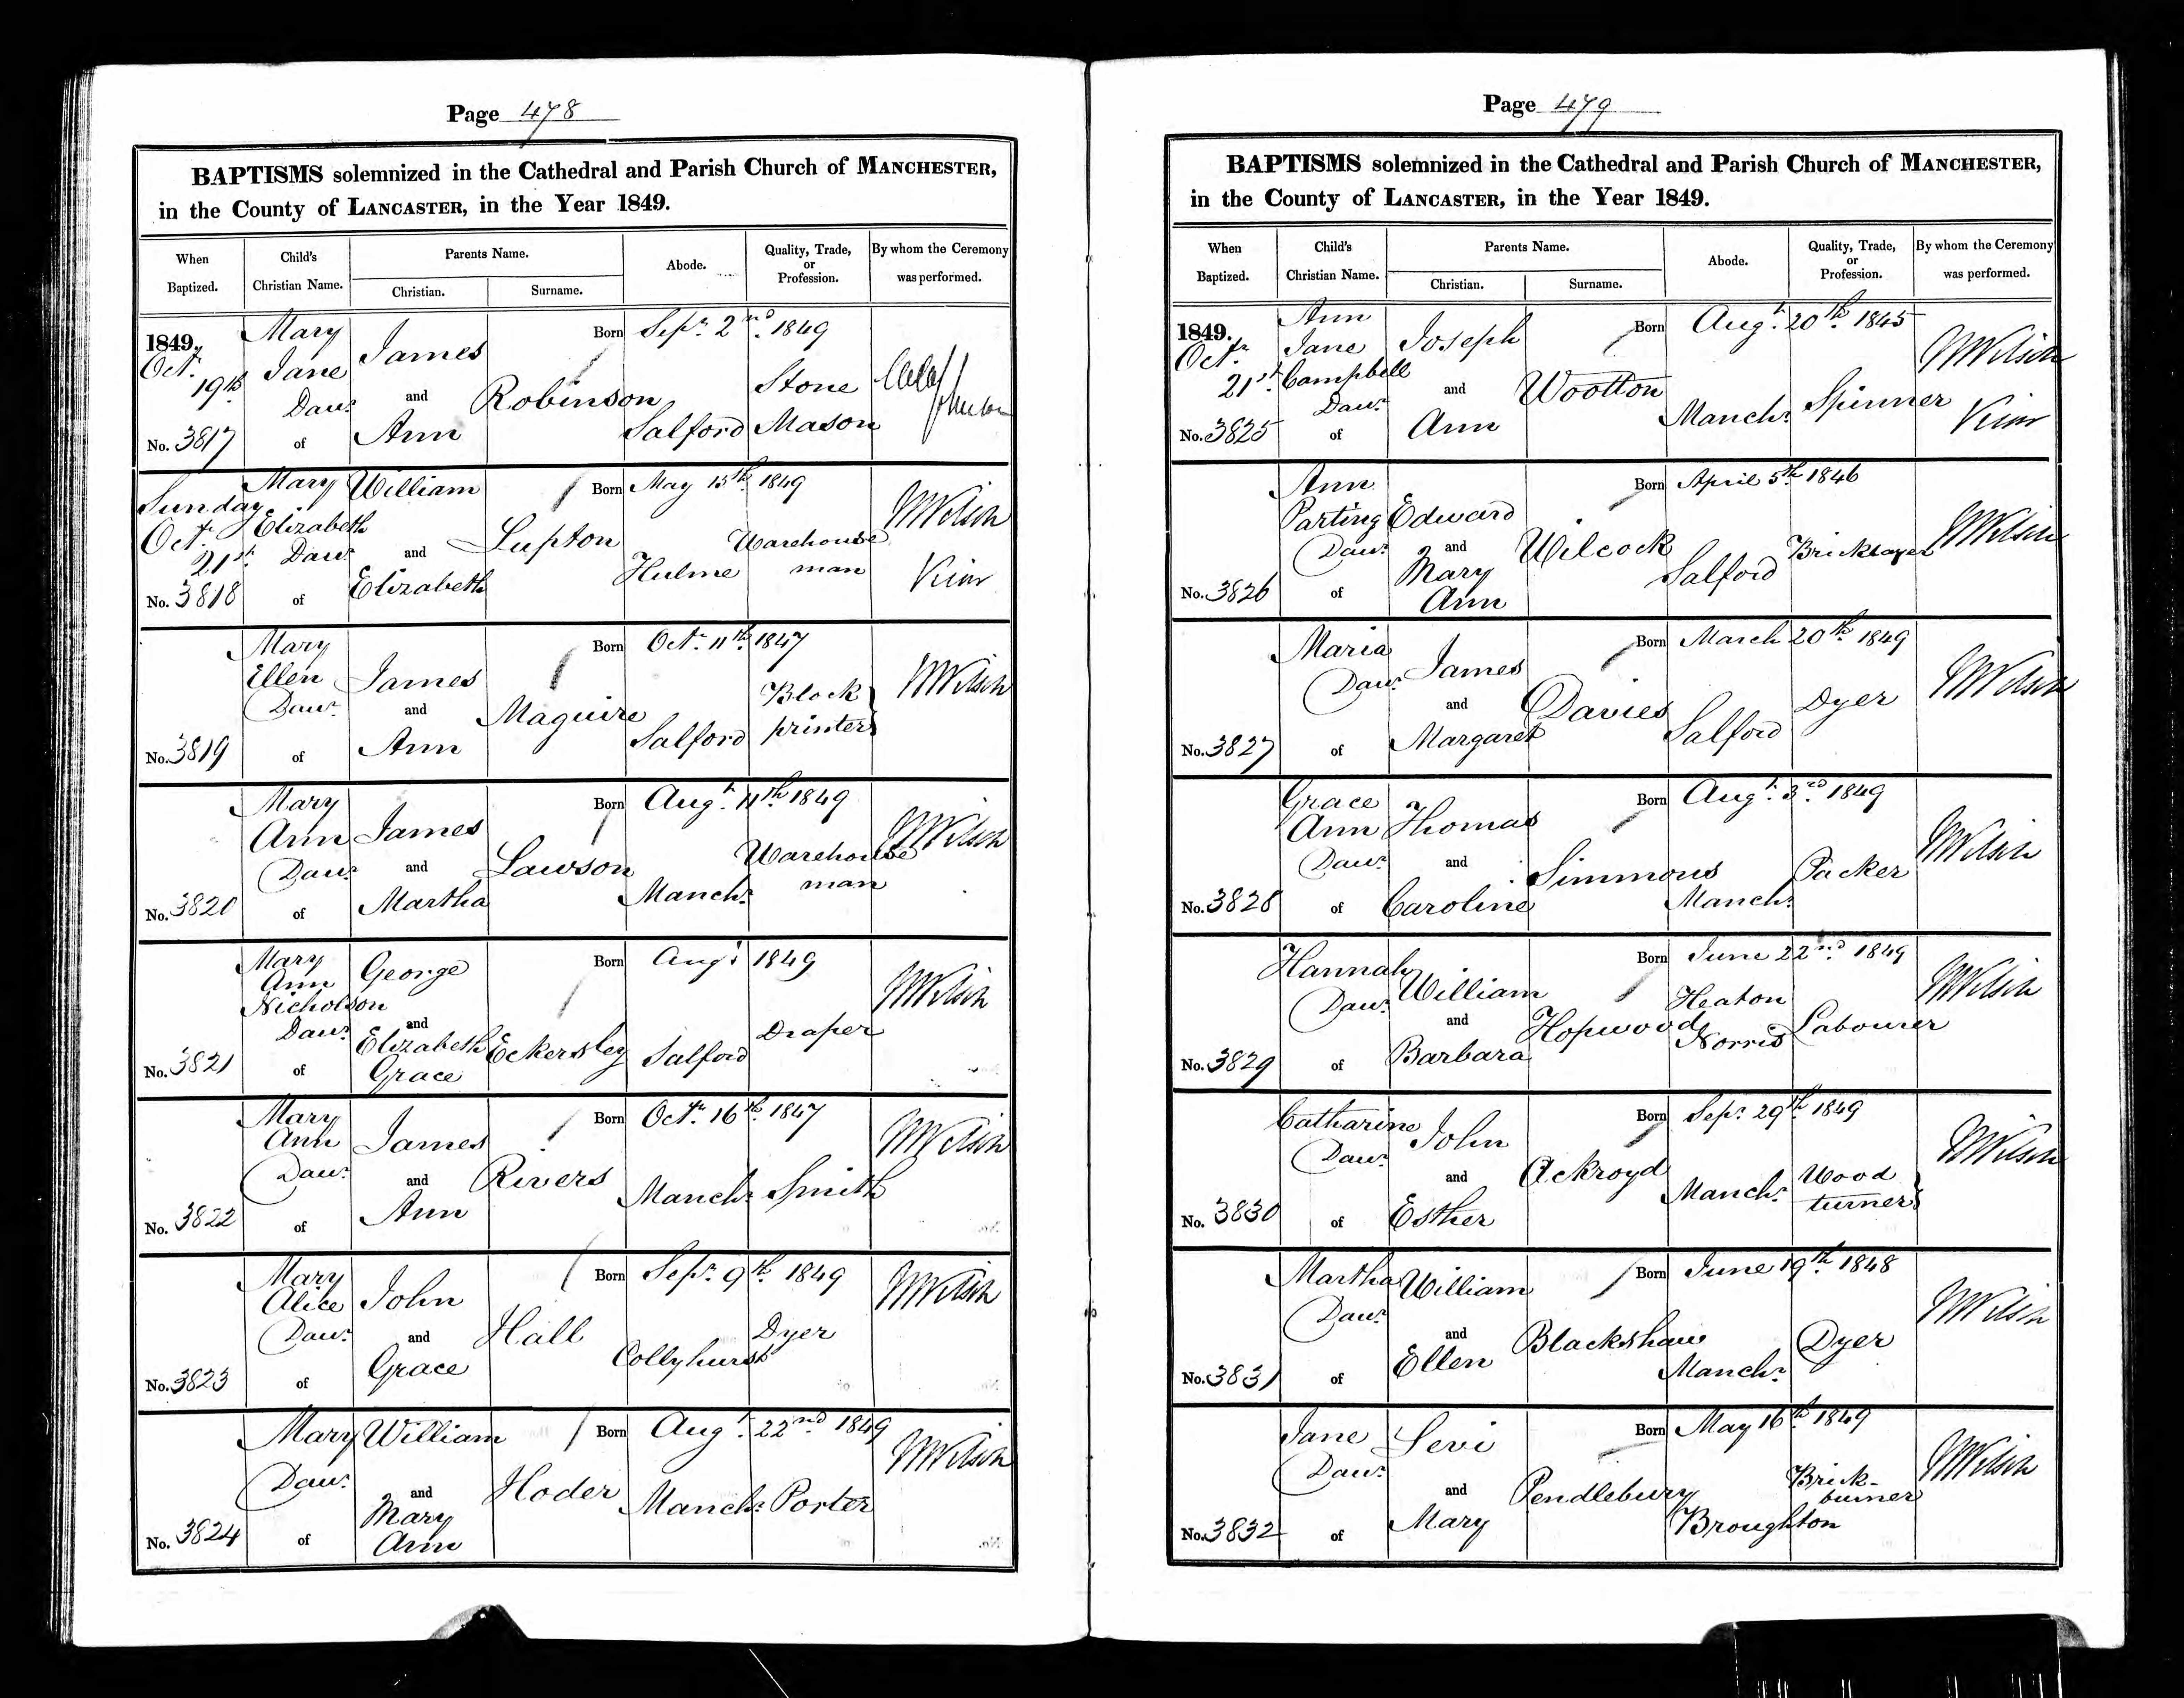 Page 478
BAPTISMS solemnized in the Cathedral and Parish Church of MANCHESTER,
in the County of LANCASTER, in the Year 1849.
When Baptized. Child's Christian Name. Parents Name. Christian. Surname. Abode. Quality, Trade, or Profession. By whom the Ceremony was performed.
1849. Mary Born Sepr. 2nd. 1849
Octr. 19th Jane James Stone
Dawr. and Robinson Salford Mason Johnson
No. 3817 of Ann
Sunday Mary William Born May 15th. 1849
Octr. Elizabeth Lupton Warehouse MWilson
21st. Dawr. and Hulme man
No. 3818 of Elizabeth
Mary Born Octr. 11th. 1847
Ellen James Block MWilson
Dawr. and Maguire Salford printer
No. 3819 of Ann
Mary Born Augt. 11th. 1849
Ann James Warehouse MWilson
Dawr. and Lawson Manchr. man
No. 3820 of Martha
Mary George Born Augt. 1849
Ann MWilson
Nicholson
Dawr. and Draper
Elizabeth Eckersley Salford
No. 3821 of Grace
Mary Born Octr. 16th. 1847
Ann James MWilson
Dawr. and Rivers Manchr. Smith
No. 3822 of Ann
Mary Born Sepr. 9th. 1849
Alice John MWilson
Dawr. and Hall Collyhurst Dyer
No. 3823 of Grace
Mary William Born Augt. 22nd 1849
Dawr. and Hoder Manchr. Porter MWilson
Mary
No. 3824 of Ann
Page 479
BAPTISMS solemnized in the Cathedral and Parish Church of MANCHESTER,
in the County of LANCASTER, in the Year 1849.
When Baptized. Child's Christian Name. Parents Name. Christian. Surname. Abode. Quality, Trade, or Profession. By whom the Ceremony was performed.
1849. Ann Born Augt. 20th. 1845
Octr. Jane Joseph MWilson
21st. Campbell and Wootton Manchr. Spinner
Dawr.
No. 3825 of Ann
Ann Born April 5th 1846
Parting Edward MWilson
Dawr. and Wilcock Salford Bricklayer
Mary
No. 3826 of Ann
Maria Born March 20th. 1849
Dawr. James MWilson
and Davies Salford Dyer
No. 3827 of Margaret
Grace Born Augt. 3rd. 1849
Ann Thomas MWilson
Dawr. and Simmons Manchr. Packer
No. 3828 of Caroline
Hannah Born June 22nd. 1849
Dawr. William Heaton MWilson
and Hopwood Norris Labourer
No. 3829 of Barbara
Catharine Born Sepr. 29th. 1849
Dawr. John MWilson
and Ackroyd Manchr. Wood
turner
No. 3830 of Esther
Martha William Born June 19th. 1848
Dawr. MWilson
and Blackshaw Manchr. Dyer
No. 3831 of Ellen
Jane Levi Born May 16th. 1849
Dawr. Brick- MWilson
and Pendlebury burner
Broughton
No. 3832 of Mary